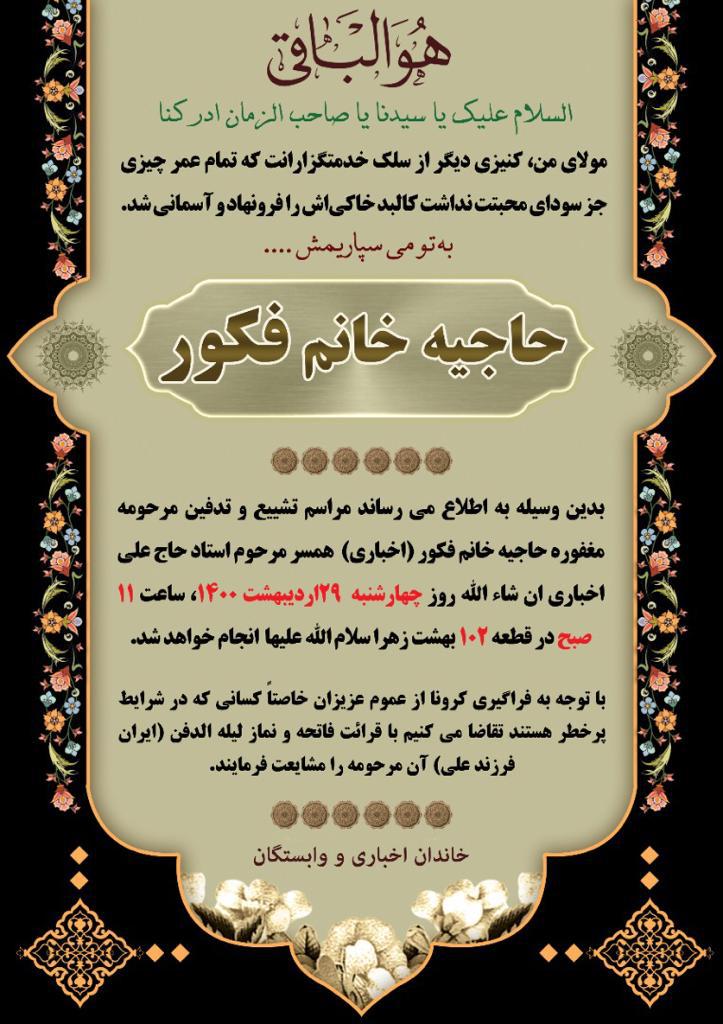 هوالباقی
السلام علیک یا سیدنا یا صاحب الزمان ادرکنا
مولای من، کنیزی دیگر از سلک خدمتگزارانت که تمام عمر چیزی
جز سودای محبتت نداشت کالبد خاکی‌اش را فرونهاد و آسمانی شد.
به تو می سپاریمش ....
حاجیه خانم فکور
بدین وسیله به اطلاع می رساند مراسم تشییع و تدفین مرحومه
مغفوره حاجیه خانم فکور (اخباری) همسر مرحوم استاد حاج علی
اخباری ان شاء الله روز چهارشنبه ۲۹اردیبهشت ۱۴۰۰، ساعت ۱۱
صبح در قطعه ۱۰۲ بهشت زهرا سلام الله علیها انجام خواهد شد.
با توجه به فراگیری کرونا از عموم عزیزان خاصتاً کسانی که در شرایط
پرخطر هستند تقاضا می کنیم با قرائت فاتحه و نماز لیله الدفن (ایران
فرزند علی) آن مرحومه را مشایعت فرمایند.
خاندان اخباری و وابستگان